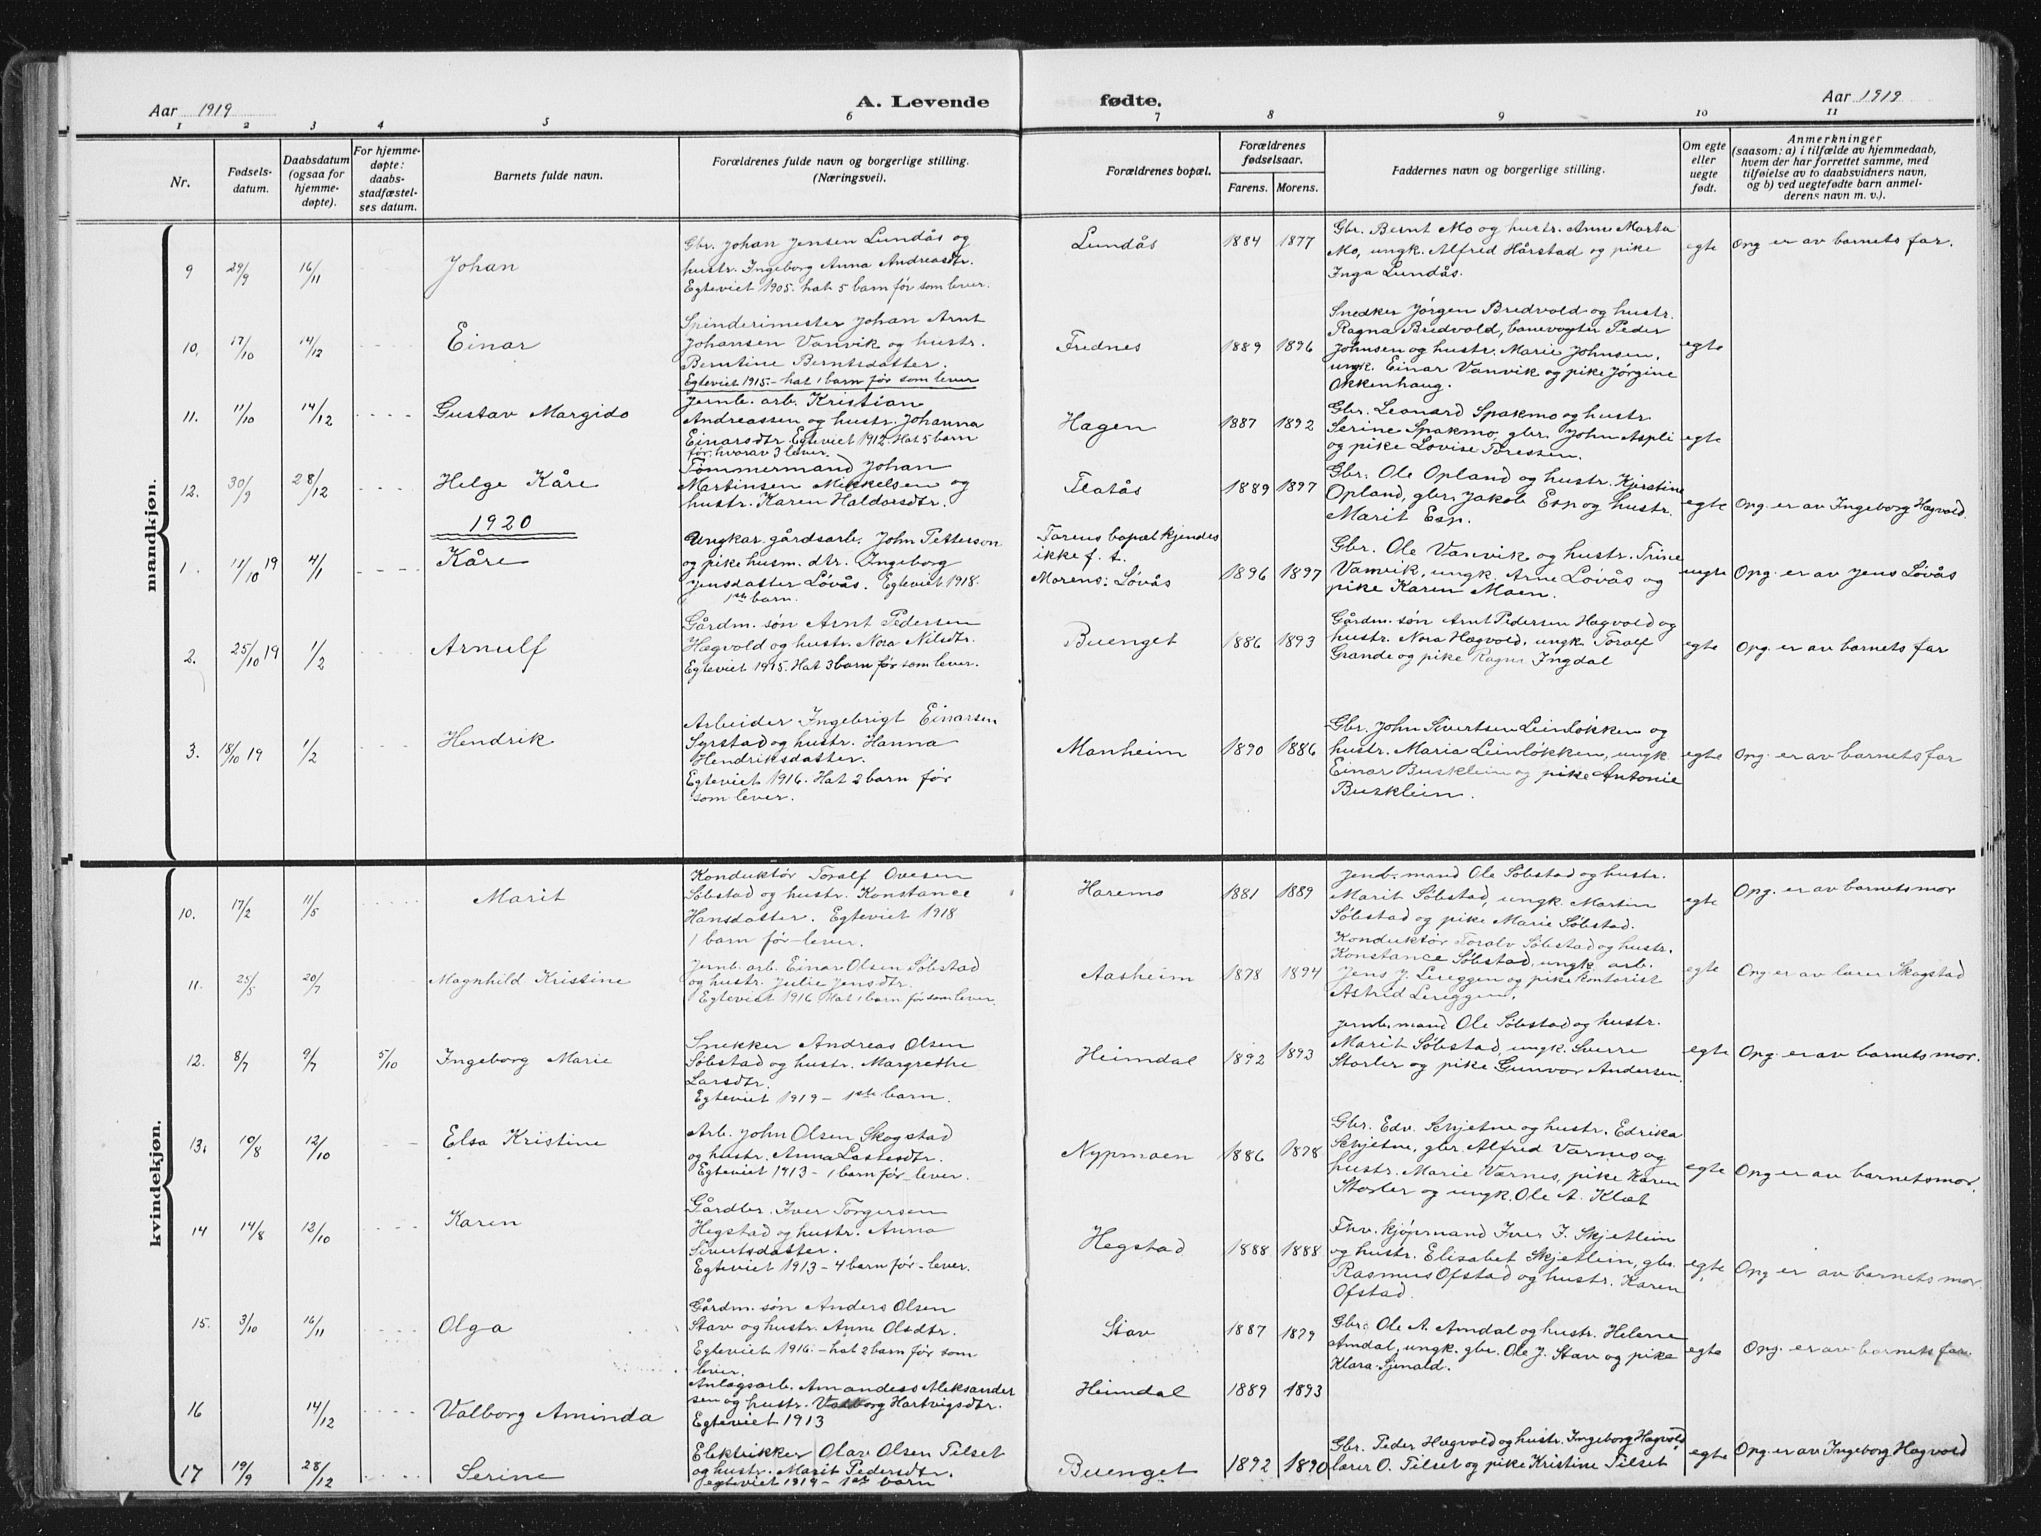 Aar 1919
A. Levende
fødte.
Aar 1919
1 2 3 4 5 6 7 8 9 10 11
Nr.
Fødsels-
datum.
Daabsdatum
(ogsaa for
hjemme-
døpte).
For hjemme-
døpte:
daabs-
stadfæstel-
ses datum.
Barnets fulde navn.
Forældrenes fulde navn og borgerlige stilling.
(Næringsvei).
Forældrenes bopæl.
Forældrenes
fødselsaar.
Farens. Morens.
Faddernes navn og borgerlige stilling.
Om egte
eller
uegte
født.
Anmerkninger
(saasom: a) i tilfælde av hjemmedaab,
hvem der har forrettet samme, med
tilføielse av to daabsvidners navn,
og b) ved uegtefødte barn anmel-
derens navn m. v.).
mandkjøn.
9 29/9 16/11 Johan
Gbr. Johan Jensen Lundås og
hustr. Ingeborg Anna Andreasdtr.
Egteviet 1905. hat 5 barn før som lever.
Lundås 1884 1877
Gbr. Bernt Mo og hustr. Anne Marta
Mo, ungk. Alfred Hårstad og pike
Inga Lundås.
egte Opg er av barnets far.
10. 17/10 14/12 Einar
Spinderimester Johan Arnt
Johansen Vanvik og hustr.
Berntine Berntsdatter.
Egteviet 1915 - hat 1 barn før som lever
Frednes 1889 1896
Snedker Jørgen Bredvold og hustr.
Ragna Bredvold, banevogter Peder
Johnsen og hustr. Marie Johnsen,
ungk. Einar Vanvik og pike Jørgine
Okkenhaug.
egte
11. 11/10 14/12 Gustav Margido
Jernb. arb. Kristian
Andreassen og hustr. Johanna
Einarsdtr. Egteviet 1912. Hat 5 barn
før, hvorav 3 lever.
Hagen 1887 1892
Gbr. Leonard Spakmo og hustr.
Serine Spakmo, gbr. John Aspli
og pike Lovise Toressen.
egte
12. 30/9 28/12 Helge Kåre
Tømmermand Johan
Martinsen Mikkelsen og
hustr. Karen Haldorsdtr.
Flatås 1889 1897
Gbr. Ole Opland og hustr. Kjerstine
Opland, gbr. Jakob Esp og hustr.
Marit Esp.
egte Opg. er av Ingeborg Hægvold.
1920
1. 11/10 19 4/1 Kåre
Ungkar gårdsarb. John Petterson
og pike husm. dtr. Ingeborg
Jensdatter Løvås. Egteviet 1918.
1ste barn.
Farens bopæl kjendes
ikke f. t.
Morens: Løvås 1896 1897
Gbr. Ole Vanvik og hustr. Trine
Vanvik, ungk. Arne Løvås og
pike Karen Moen.
uegte Opg. er av Jens Løvås
2. 25/10 19 1/2 Arnulf
Gårdm. søn Arnt Pedersen
Hægvold og hustr. Nora Nilsdtr.
Egteviet 1915. Hat 3 barn før som lever.
Buenget 1886 1893
Gårdm. søn Arnt Pedersen Hægvold og
hustr. Nora Hægvold, ungk. Toralf
Grande og pike Ragna Ingdal
egte Opg. er av barnets far
3. 18/10 19 1/2 Hendrik
Arbeider Ingebrigt Einarsen
Syrstad og hustr. Hanna
Hendriksdatter.
Egteviet 1916. Hat 2 barn før
som lever.
Manheim 1890 1886
Gbr. John Sivertsen Leinløkken og
hustr. Maria Leinløkken, ungk.
Einar Busklein og pike Antonie
Busklein.
egte Opg. er av barnets far
kvindekjøn.
10. 17/2 11/5 Marit
Konduktør Toralf Ovesen
Søbstad og hustr. Konstance
Hansdatter. Egteviet 1918
1 barn før - lever.
Haremo 1881 1889
Jernb. mand Ole Søbstad og hustr.
Marit Søbstad, ungk. Martin
Søbstad og pike Marie Søbstad.
egte Opg. er av barnets mor
11. 25/5 20/7 Magnhild Kristine
Jernb. arb. Einar Olsen Søbstad
og hustr. Julie Jensdtr.
Egteviet 1916 Hat 1 barn før som lever.
Aasheim 1878 1894
Konduktør Toralv Søbstad og hustr.
Konstance Søbstad, ungk. arb.
Jens J. Lereggen og pike kontorist
Astrid Lereggen.
egte Opg er av lærer Skogstad
12. 8/7 9/7 5/10 Ingeborg Marie
Snekker Andreas Olsen
Søbstad og hustr. Margrethe
Larsdtr.
Egteviet 1919 - 1ste barn.
Heimdal 1892 1893
Jernb. mand Ole Søbstad og hustr.
Marit Søbstad ungk. Sverre
Storler og pike Gunvor Andersen.
egte Opg. er av barnets mor.
13. 10/8 12/10 Elsa Kristine
Arb. John Olsen Skogstad
og hustr. Anna Lassesdtr.
Egteviet 1913 - 1 barn før - lever.
Nypmoen 1886 1878
Gbr. Edv. Schjetne og hustr. Edrika
Schjetne, gbr. Alfred Værnes og
hustr. Marie Værnes, pike Karen
Storler og ungk. Ole A. Klæt
egte Opg er av barnets mor.
14 14/8 12/10 Karen
Gårdbr. Iver Torgersen
Hegstad og hustr. Anna
Sivertsdatter.
Egteviet 1913 - 4 barn før - lever.
Hegstad 1888 1888
Fhv. kjøpmand Iver I. Skjetlein
og hustr. Elisabet Skjetlein, gbr.
Rasmus Ofstad og hustr. Karen
Ofstad.
egte Opg er av barnets mor
15. 3/10 16/11 Olga
Gårdm. søn Anders Olsen
Stav og hustr. Anne Olsdtr.
Egteviet 1916 - hat 2 barn før som
lever.
Stav 1887 1879
Gbr. Ole A. Amdal og hustr. Helene
Amdal, ungk. gbr. Ole J. Stav og pike
Klara
egte Opg. er av barnets far.
16 14/12 Valborg Aminda
Anlægsarb. Amandess Aleksander
sen og hustr. Valborg Hartvigsdtr.
Egteviet 1913
Heimdal 1889 1893
17 19/9 28/12 Serine
Elektrikker Olav Olsen Tilset
og hustr. Marit Pedersdtr.
Egteviet 1919 - 1ste barn
Buenget 1892 1890
Gbr. Peder Hægvold og hustr. Ingeborg Hægvold,
lærer O. Tilset og pike Kristine Tilset
egte Opg. er av Ingeborg Hægvold